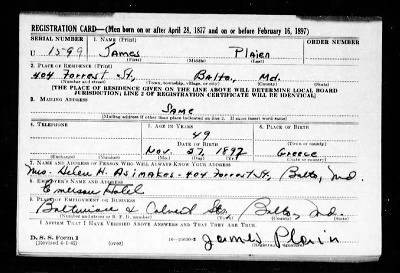 REGISTRATION CARD—(Men born on or after April 28, 1877 and on or before February 16, 1897)
SERIAL NUMBER 1. NAME (Print) ORDER NUMBER
U 1599 James Plaien
(First) (Middle) (Last)
2. PLACE OF RESIDENCE (Print)
404 Forrest St, Balto, Md.
(Number and street) (Town, township, village, or city) (County) (State)
[THE PLACE OF RESIDENCE GIVEN ON THE LINE ABOVE WILL DETERMINE LOCAL BOARD
JURISDICTION; LINE 2 OF REGISTRATION CERTIFICATE WILL BE IDENTICAL]
3. MAILING ADDRESS
Same
[Mailing address if other than place indicated on line 2. If same insert word same]
4. TELEPHONE 5. AGE IN YEARS 6. PLACE OF BIRTH
49
DATE OF BIRTH
Nov. 27, 1892 Greece
(Exchange) (Number) (Mo.) (Day) (Yr.) (State or country)
7. NAME AND ADDRESS OF PERSON WHO WILL ALWAYS KNOW YOUR ADDRESS
Mrs. Helen H. Asimakes - 404 Forrest St, Balto, Md.
8. EMPLOYER'S NAME AND ADDRESS
Emerson Hotel
9. PLACE OF EMPLOYMENT OR BUSINESS
Baltimore & Calvert Sts, Balto, Md.
(Number and street or R. F. D. number) (Town) (County) (State)
I AFFIRM THAT I HAVE VERIFIED ABOVE ANSWERS AND THAT THEY ARE TRUE.
D. S. S. Form 1
(Revised 4-1-42) (over)